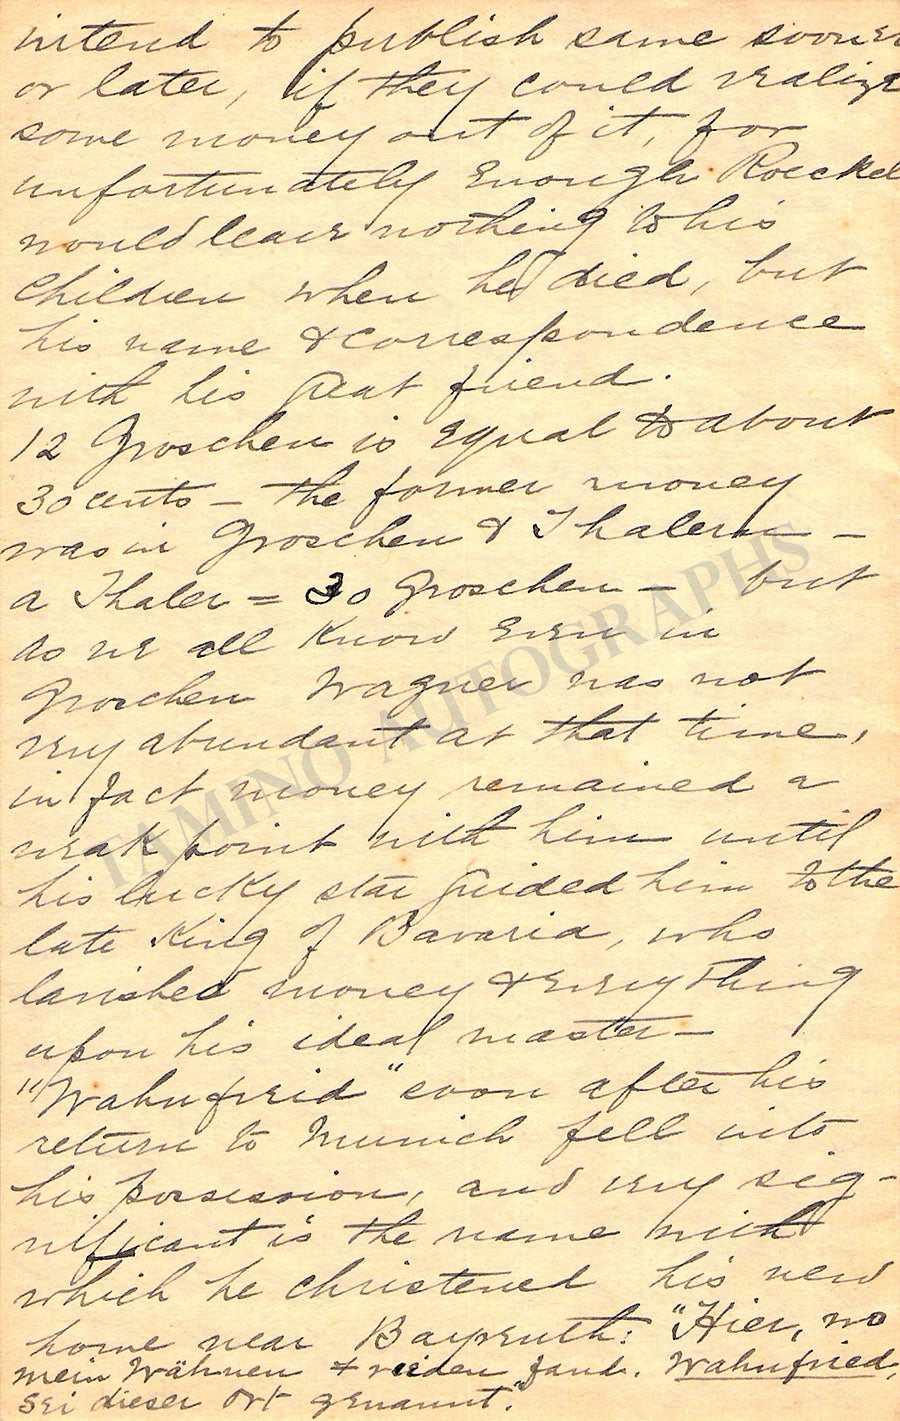 intend to publish same sooner
or later, if they could realize
some money out of it, for
unfortunately enough Roeckel
would leave nothing to his
children when he died, but
his name & correspondence
with his great friend.
12 Groschen is equal to about
30 cents – the former money
was in Groschen & Thalern –
a Thaler = 30 Groschen – but
as we all know even in
Groschen Wagner was not
very abundant at that time,
in fact money remained a
weak point with him until
his lucky star guided him to the
late King of Bavaria, who
lavished money & everything
upon his ideal master –
"Wahnfried" soon after his
return to Munich fell into
his possession, and very sig-
nificant is the name with
which he christened his new
home near Bayreuth: "Hier, wo
mein Wähnen Frieden fand. Wahnfried,
sei dieser Ort genannt."
TAMINO AUTOGRAPHS